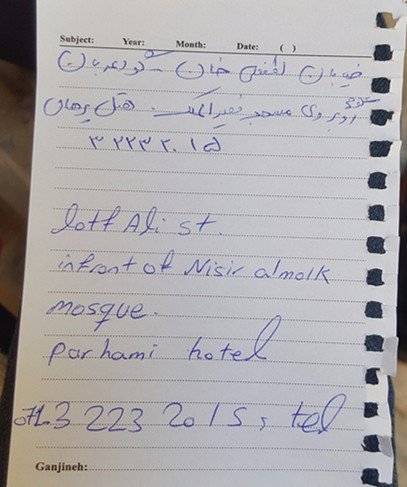 Subject: Year: Month: Date: ( )
خیابان لطفعلی خان - گود عربان
روبروی مسجد نصیرالملک. هتل پرهامی
۳۲۲۳۲۰۱۵
lotf Ali st.
infront of Nisir almolk
mosque.
parhami hotel
071 3 223 2015, tel
Ganjineh: